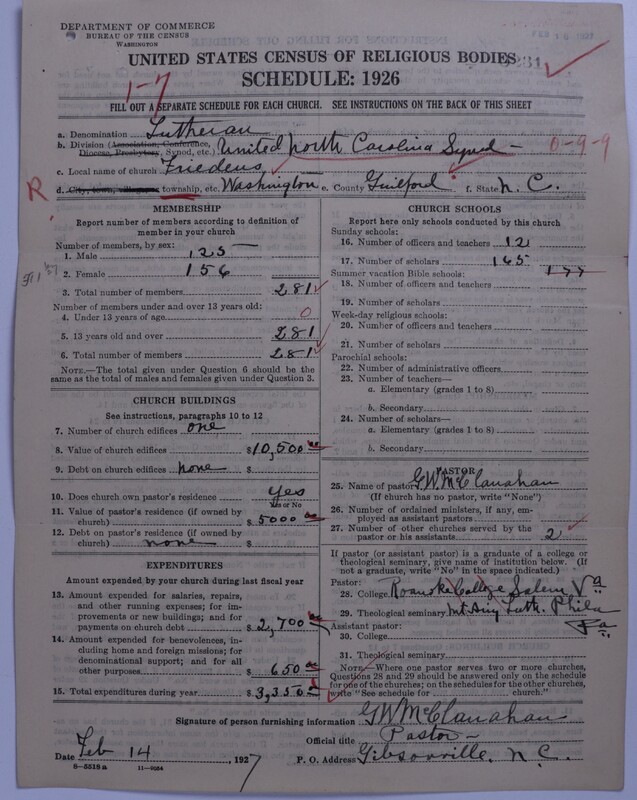 DEPARTMENT OF COMMERCE
BUREAU OF THE CENSUS
WASHINGTON
UNITED STATES CENSUS OF RELIGIOUS BODIES
SCHEDULE: 1926
1-7
FILL OUT A SEPARATE SCHEDULE FOR EACH CHURCH. SEE INSTRUCTIONS ON THE BACK OF THIS SHEET
a. Denomination Lutheran
b. Division (Association, Conference, Diocese, Presbytery, Synod, etc.) United North Carolina Synod - 0-9-9
c. Local name of church Friedens
R d. City, town, village, township, etc. Washington e. County Guilford f. State N. C.
MEMBERSHIP
Report number of members according to definition of member in your church
Number of members, by sex:
1. Male 125
2. Female 156
3. Total number of members 281
Number of members under and over 13 years old:
4. Under 13 years of age 0
5. 13 years old and over 281
6. Total number of members 281
NOTE.—The total given under Question 6 should be the same as the total of males and females given under Question 3.
CHURCH BUILDINGS
See instructions, paragraphs 10 to 12
7. Number of church edifices one
8. Value of church edifices $10,500
9. Debt on church edifices none $
10. Does church own pastor's residence Yes
Yes or No
11. Value of pastor's residence (if owned by church) $5000
12. Debt on pastor's residence (if owned by church) none $
EXPENDITURES
Amount expended by your church during last fiscal year
13. Amount expended for salaries, repairs, and other running expenses; for improvements or new buildings; and for payments on church debt $2,700
14. Amount expended for benevolences, including home and foreign missions; for denominational support; and for all other purposes $650
15. Total expenditures during year $3,350
CHURCH SCHOOLS
Report here only schools conducted by this church
Sunday schools:
16. Number of officers and teachers 12
17. Number of scholars 165
177
Summer vacation Bible schools:
18. Number of officers and teachers
19. Number of scholars
Week-day religious schools:
20. Number of officers and teachers
21. Number of scholars
Parochial schools:
22. Number of administrative officers
23. Number of teachers—
a. Elementary (grades 1 to 8)
b. Secondary
24. Number of scholars—
a. Elementary (grades 1 to 8)
b. Secondary
PASTOR
25. Name of pastor G.W. McClanahan
(If church has no pastor, write "None")
26. Number of ordained ministers, if any, employed as assistant pastors
27. Number of other churches served by the pastor or his assistants 2
If pastor (or assistant pastor) is a graduate of a college or theological seminary, give name of institution below. (If not a graduate, write "No" in the space indicated.)
Pastor:
28. College Roanoke College Salem Va
29. Theological seminary Mt. Airy Luth. Phila Pa
Assistant pastor:
30. College
31. Theological seminary
NOTE.—Where one pastor serves two or more churches, Questions 28 and 29 should be answered only on the schedule for one of the churches; on the schedules for the other churches, write "See schedule for ____ church."
Signature of person furnishing information G W McClanahan
Official title Pastor
Date Feb 14, 1927 P. O. Address Gibsonville, N. C.
8-5518 a 11-9054